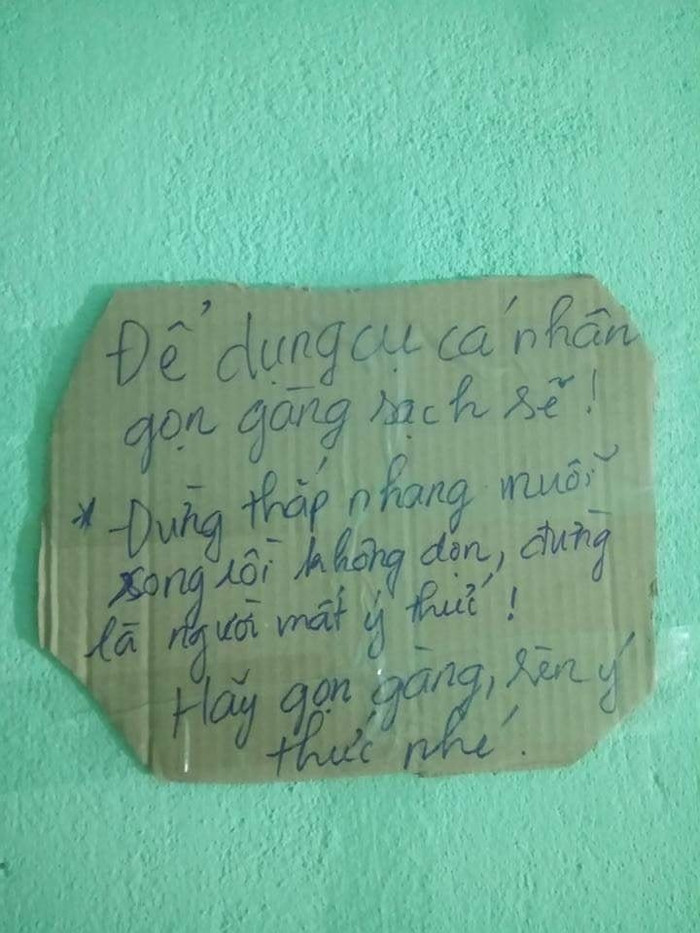 Để dụng cụ cá nhân
gọn gàng sạch sẽ!
* Đừng thắp nhang muỗi
xong rồi không dọn, đừng
là người mất ý thức!
Hãy gọn gàng, rèn ý
thức nhé!